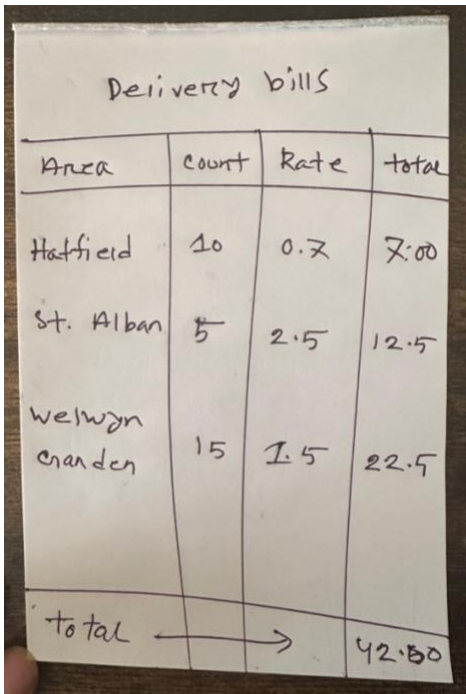 Delivery bills
Area count Rate total
Hatfield 10 0.7 7:00
St. Alban 5 2.5 12.5
Welwyn
Garden 15 1.5 22.5
Total → 42.00